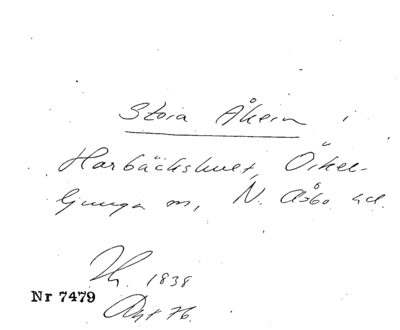 Stora Åkern i
Harbäckshult, Örkel-
ljunga sn, N. Åsbo hd.
Th. 1838
Nr 7479
Avt 76.